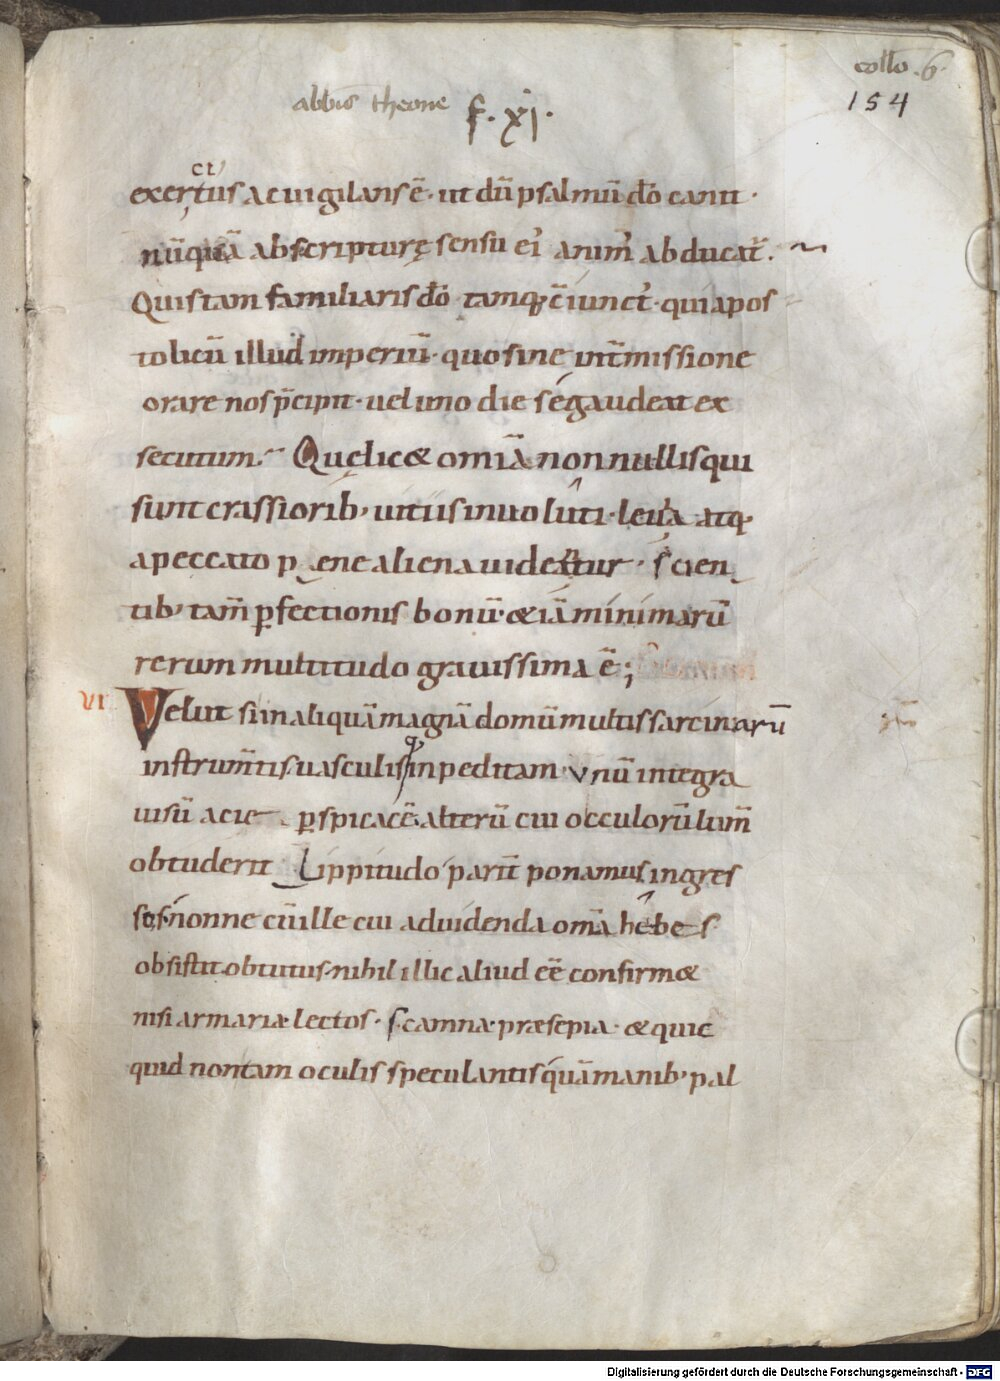 collo .6.
154
abbis theone f. xi.
ct
exertus ac uigilans ē · ut dū psalmū dō canit ·
nūquā ab scripturę sensu ei' anim' abducat̄.
Quis tam familiaris dō tamq; ē iunct' · qui apos
tolicū illud imperiū · quo sine int̄missione
orare nos p̄cipit · uel uno die se gaudeat ex
secutum. Quę licet omīa non nullis qui
sunt crassiorib; uitiis inuoluti · leuia atq;
a peccato pene aliena uideantur · scien
tib; tam̄ ꝑfectionis bonū · & iā minimarū
rerum multitudo grauissima ē;
VI
Velut si in aliquā magnā domū multis sarcinarū
instrum̄tis uasculisq; inpeditam · unū integra
uisū acie ꝑspicacē alterū cui occulorū lum̄
obtuderit Lippitudo parit̄ ponamus ingres
sos · nonne cū ille cui ad uidenda omīa hebes
obsistit obtutus · nihil illic aliud eē confirm&
nisi armaria · lectos · scamna · præsepia · & quic
quid non tam oculis speculantis quā manib; pal
Digitalisierung gefördert durch die Deutsche Forschungsgemeinschaft - DFG